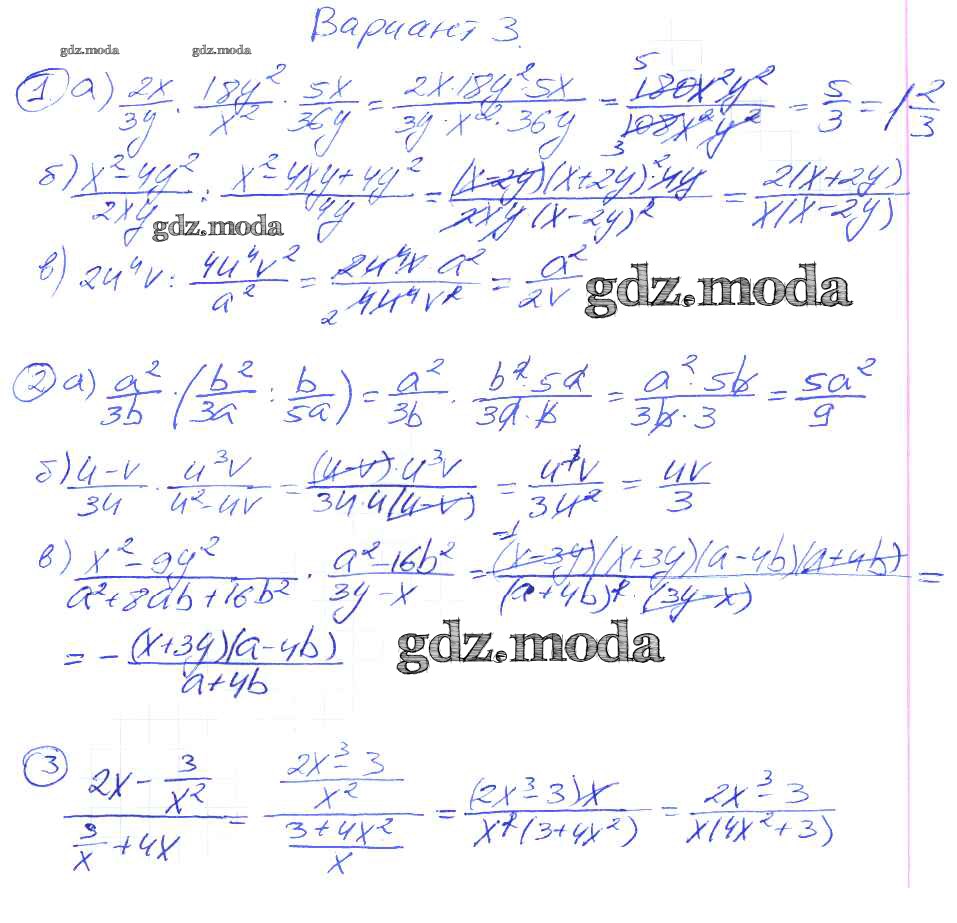 Вариант 3.
gdz.moda gdz.moda
① а) 2x/3y · 18y²/x² · 5x/36y = 2x·18y²·5x/3y·x²·36y = 180x²y²/108x²y² = 5/3 = 1 2/3
б) x²-4y²/2xy : x²-4xy+4y²/4y = (x-2y)(x+2y)·4y/2xy(x-2y)² = 2(x+2y)/x(x-2y)
gdz.moda
в) 2u⁴v : 4u⁴v²/a² = 2u⁴v·a²/4u⁴v² = a²/2v
gdz.moda
② а) a²/3b · (b²/3a : b/5a) = a²/3b · b²·5a/3a·b = a²·5b/3b·3 = 5a²/9
б) u-v/3u · u³v/u²-uv = (u-v)·u³v/3u·u(u-v) = u³v/3u² = uv/3
в) x²-9y²/a²+8ab+16b² · a²-16b²/3y-x = (x-3y)(x+3y)(a-4b)(a+4b)/(a+4b)²·(3y-x) =
= - (x+3y)(a-4b)/a+4b
gdz.moda
③ 2x - 3/x² / 3/x + 4x = 2x³-3/x² / 3+4x²/x = (2x³-3)x/x²(3+4x²) = 2x³-3/x(4x²+3)